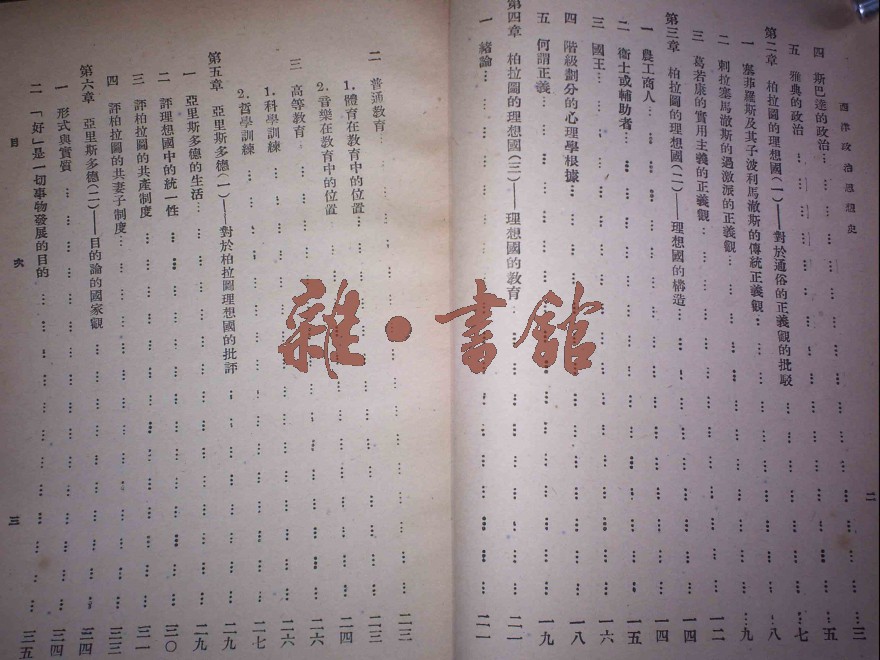 西洋政治思想史
二
四 斯巴達的政治……三
五 雅典的政治……五
第二章 柏拉圖的理想國(一)——對於通俗的正義觀的批駁……七
一 塞菲羅斯及其子波利馬澈斯的傳統正義觀……八
二 刺拉塞馬澈斯的過激派的正義觀……九
三 葛若康的實用主義的正義觀……一二
第三章 柏拉圖的理想國(二)——理想國的構造……一四
一 農工商人……一四
二 衛士或輔助者……一五
三 國王……一六
四 階級劃分的心理學根據……一八
五 何謂正義……一九
第四章 柏拉圖的理想國(三)——理想國的教育……二一
一 緒論……二一
二 普通教育……二三
1. 體育在教育中的位置……二三
2. 音樂在教育中的位置……二四
三 高等教育……二六
1. 科學訓練……二六
2. 哲學訓練……二七
第五章 亞里斯多德(一)——對於柏拉圖理想國的批評……二九
一 亞里斯多德的生活……二九
二 評理想國中的統一性……三〇
三 評柏拉圖的共產制度……三一
四 評柏拉圖的共妻子制度……三三
第六章 亞里斯多德(二)——目的論的國家觀……三四
一 形式與實質……三四
二 「好」是一切事物發展的目的……三五
目次
三
雜·書館